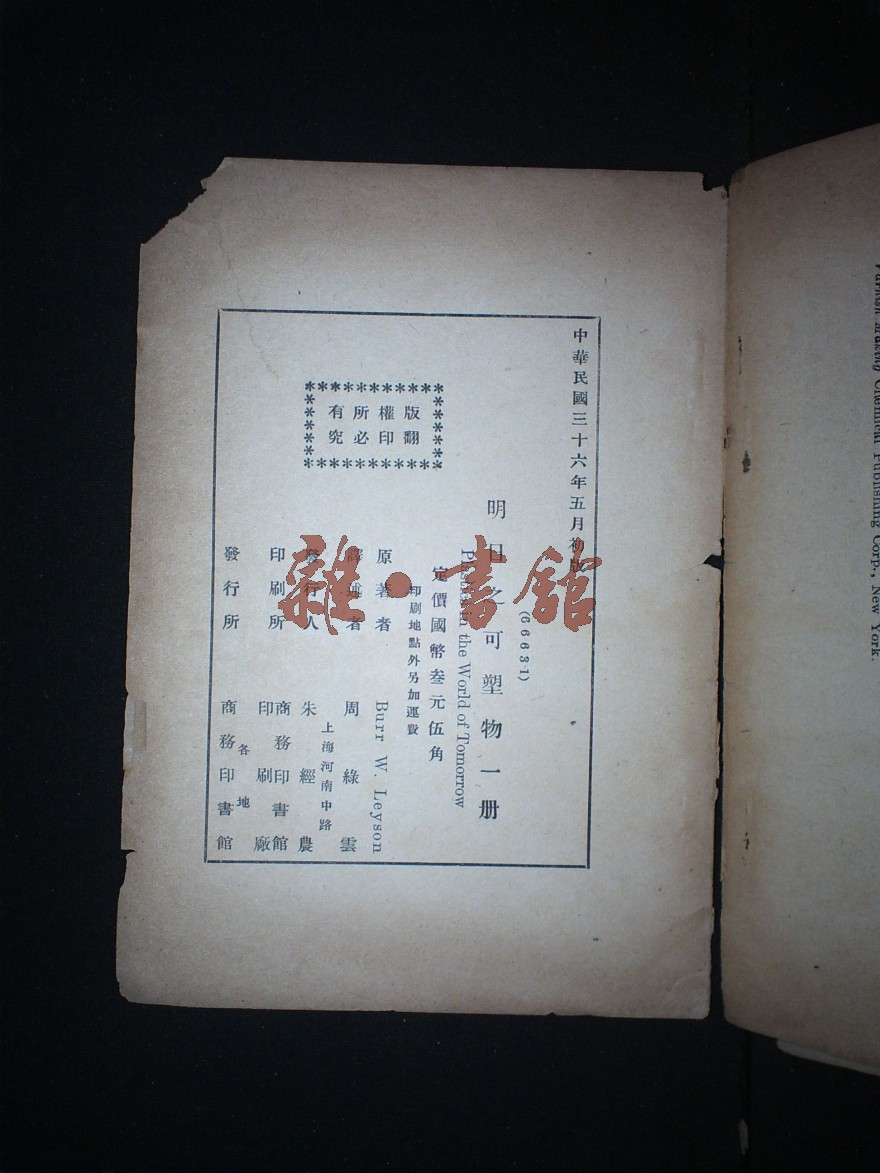 中華民國三十六年五月初版
(66631)
明日之可塑物一册
Plastics in the World of Tomorrow
定價國幣叁元伍角
印刷地點外另加運費
版權所有
翻印必究
原著者 Burr W. Leyson
譯述者 周綠雲
上海河南中路
發行人 朱經農
印刷所 商務印書館
印刷廠
各地
發行所 商務印書館
雜·書館
Varnish Making Chemical Publishing Corp., New York.